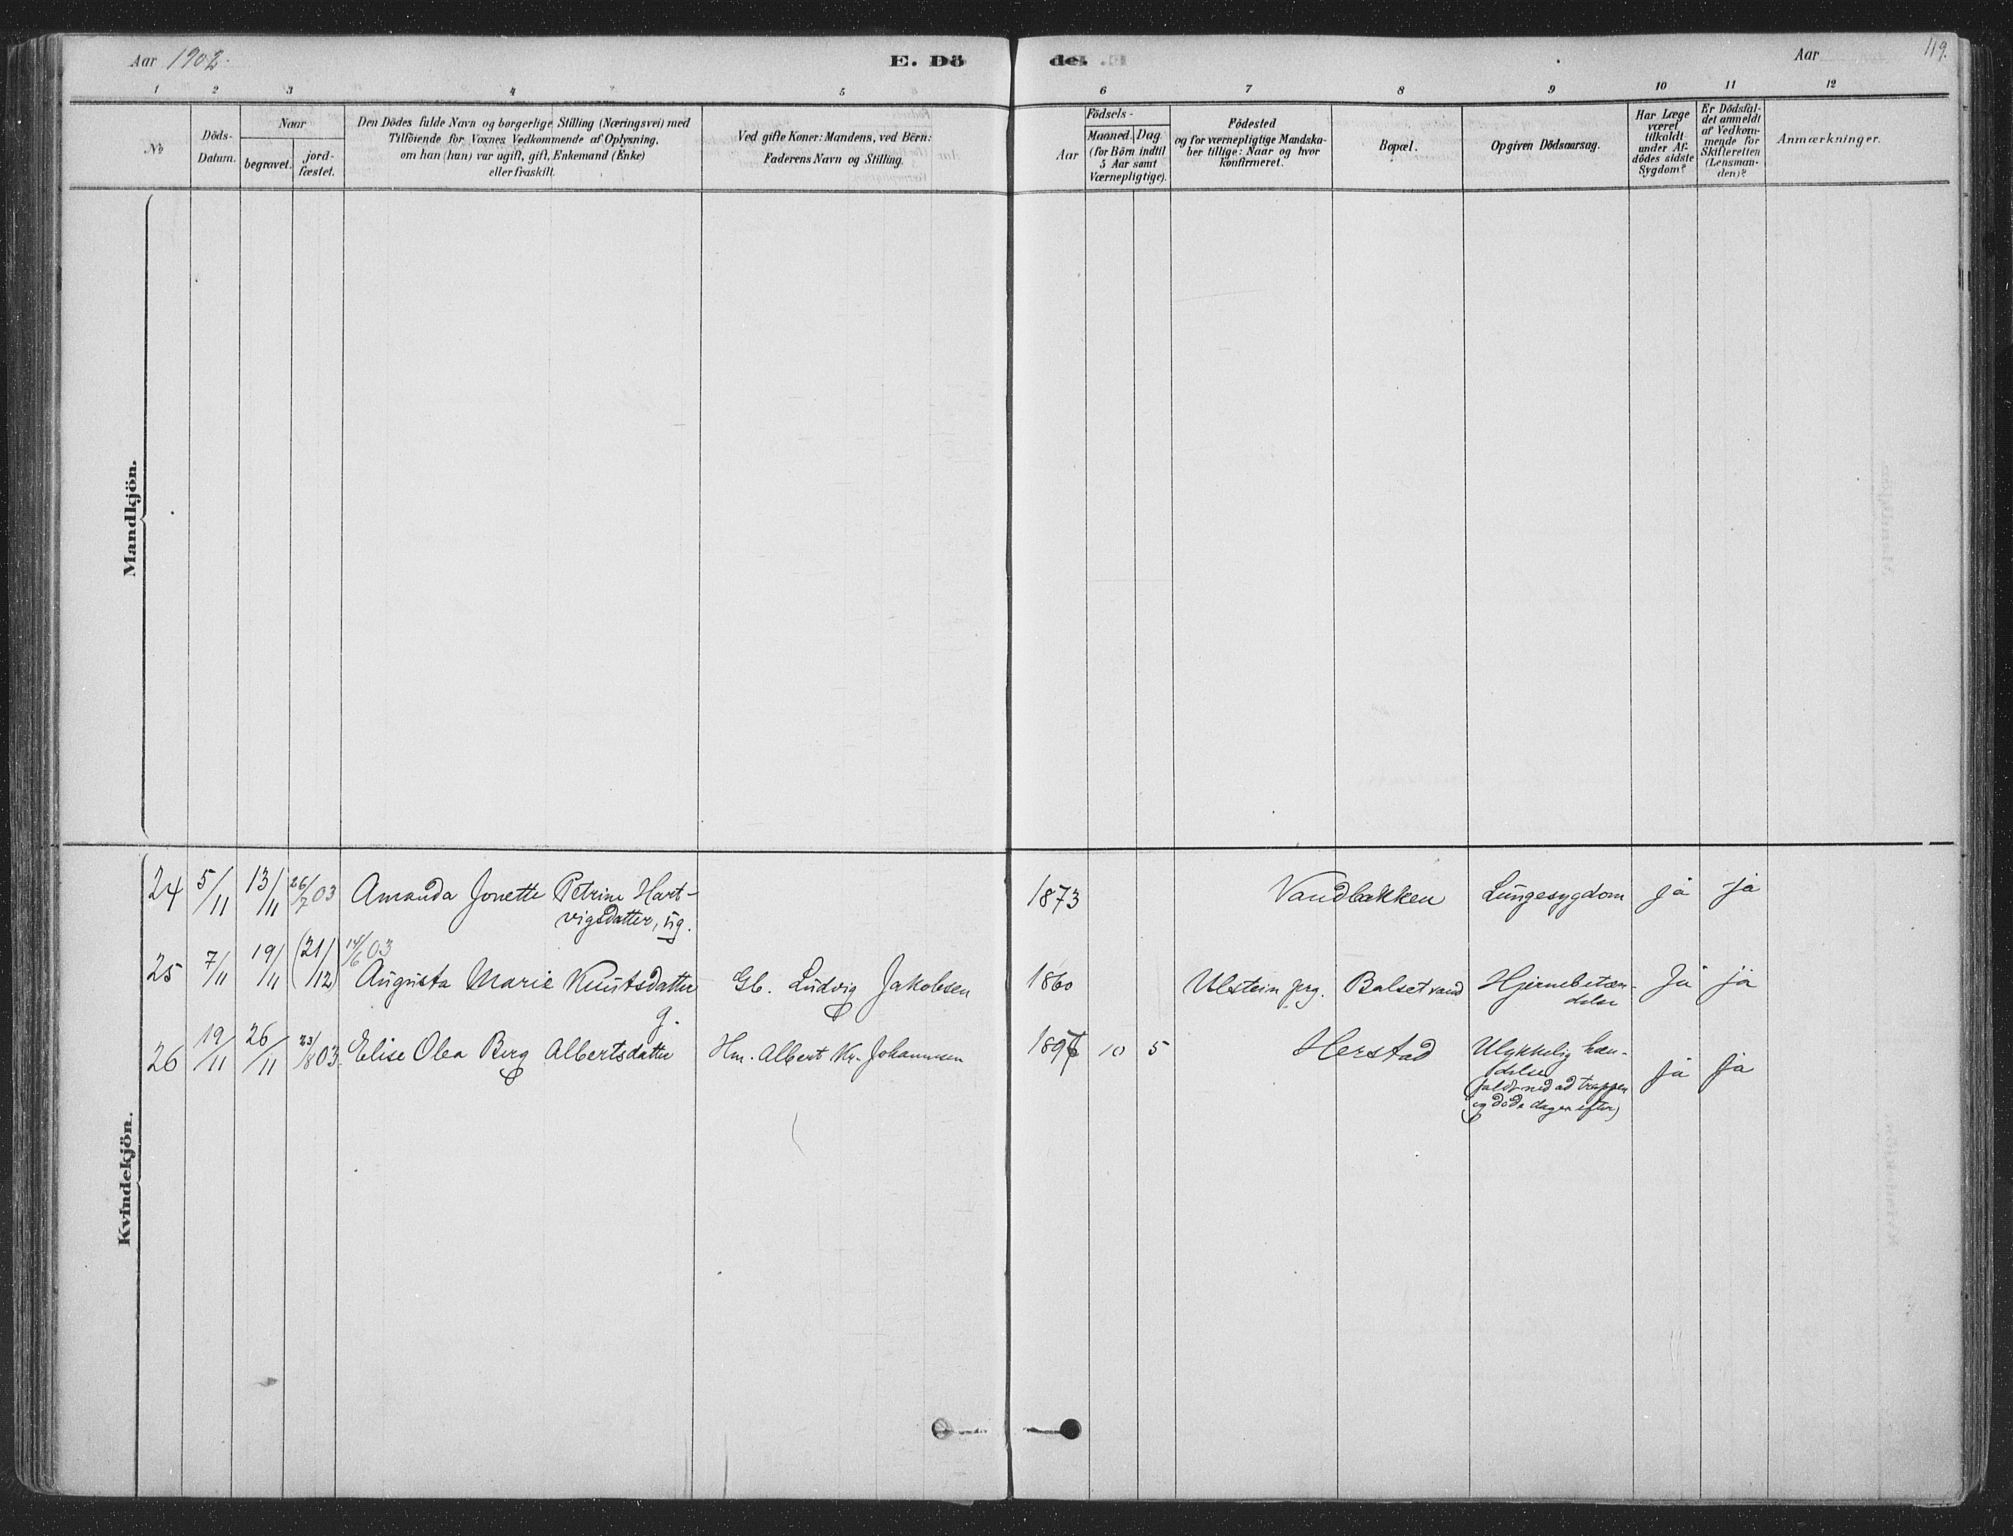 Aar 1902.
E. Dö
de.
Aar
119.
1 2 3 4 5 6 7 8 9 10 11 12
No
Döds-
Datum.
Naar
begravet.
jord-
fæstet.
Den Dödes fulde Navn og borgerlige Stilling (Næringsvei) med
Tilföiende for Voxnes Vedkommende af Oplysning,
om han (hun) var ugift, gift, Enkemand (Enke)
eller fraskilt.
Ved gifte Koner: Mandens, ved Börn:
Faderens Navn og Stilling.
Födsels-
Aar
Maaned.
Dag
(for Börn indtil
5 Aar samt
Værnepligtige).
Födested
og for værnepligtige Mandska-
ber tillige: Naar og hvor
konfirmeret.
Bopæl.
Opgiven Dödsaarsag.
Har Læge
været
tilkaldt
under Af-
dödes sidste
Sygdom?
Er Dödsfal-
det anmeldt
af Vedkom-
mende for
Skifteretten
(Lensman-
den)?
Anmærkninger.
Mandkjön.
Kvindekjön.
24 5/11 13/11 26/7 03 Amanda Jonette Petrine Hart- 1873 Vandbakken Lungesygdom ja ja
vigsdatter, ug.
25 7/11 19/11 (21/12) 14/6 03
Augusta Marie Knutsdatter Gb. Ludvig Jakobsen 1860 Ulstein prg. Balsetvand Hjernebetæn- Ja ja
g.
delse
26 19/11 26/11 23/8 03. Elise Olea Berg Albertsdatter Hm. Albert Kr. Johannsen 1896 10 5 Herstad Ulykkelig hæn- ja ja
delse
(faldt ned ad trappen
og døde dagen efter)